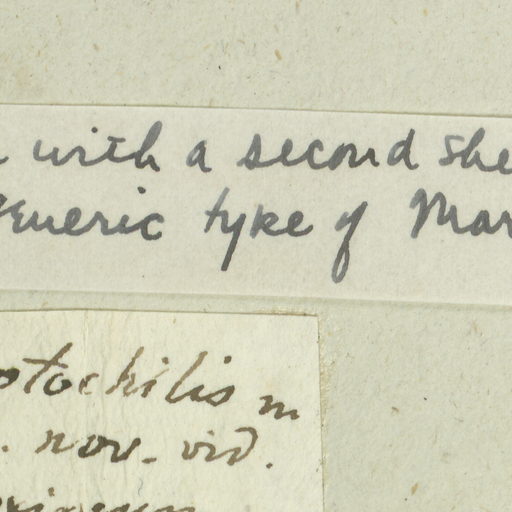 with a second she
eneric type of Mar
otochilis m
. nov. vid.